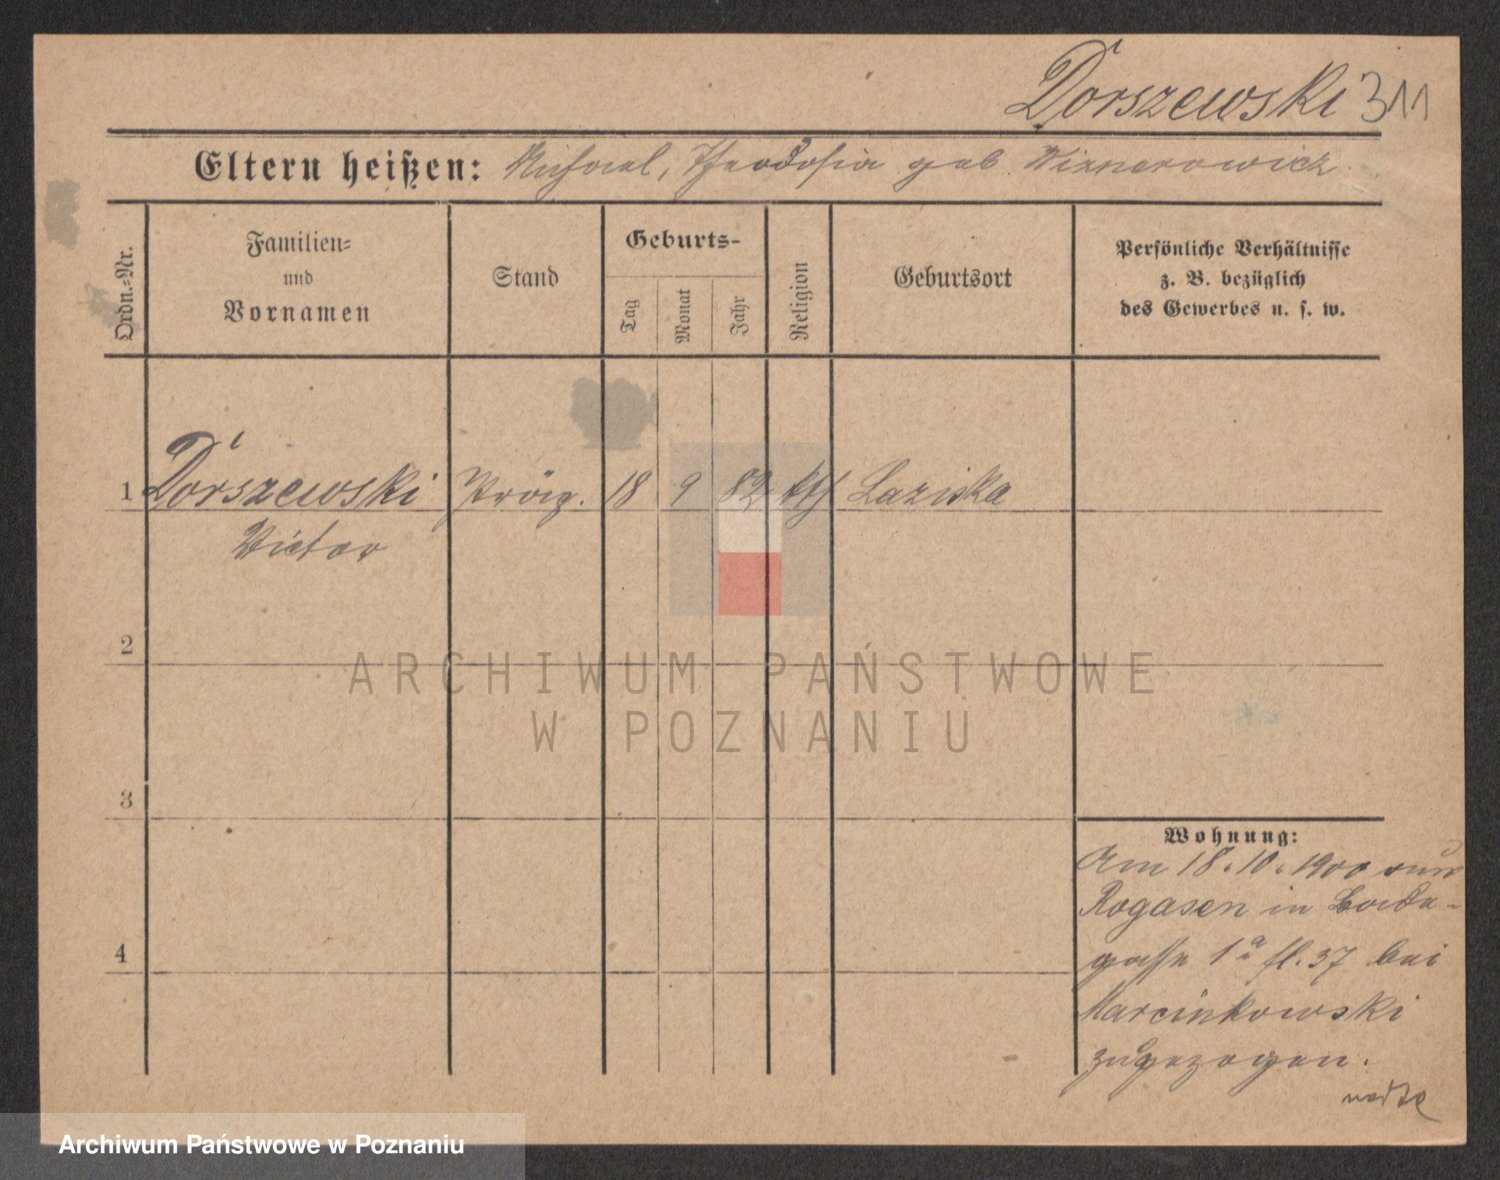 Dorszewski 311
Eltern heißen: Michael, Theodosia geb. Wiznerowicz
Ordn.=Nr.
Familien=
und
Vornamen
Stand
Geburts-
Tag
Monat
Jahr
Religion
Geburtsort
Persönliche Verhältnisse
z. B. bezüglich
des Gewerbes u. s. w.
1 Dorszewski 18 9 82 kth Laziska
Victor
2
ARCHIWUM PAŃSTWOWE
W POZNANIU
3
Wohnung:
Am 18.10.1900 von
Rogasen in
gasse 1a fl. 37 bei
4
Marcinkowski
zugezogen.
Archiwum Państwowe w Poznaniu